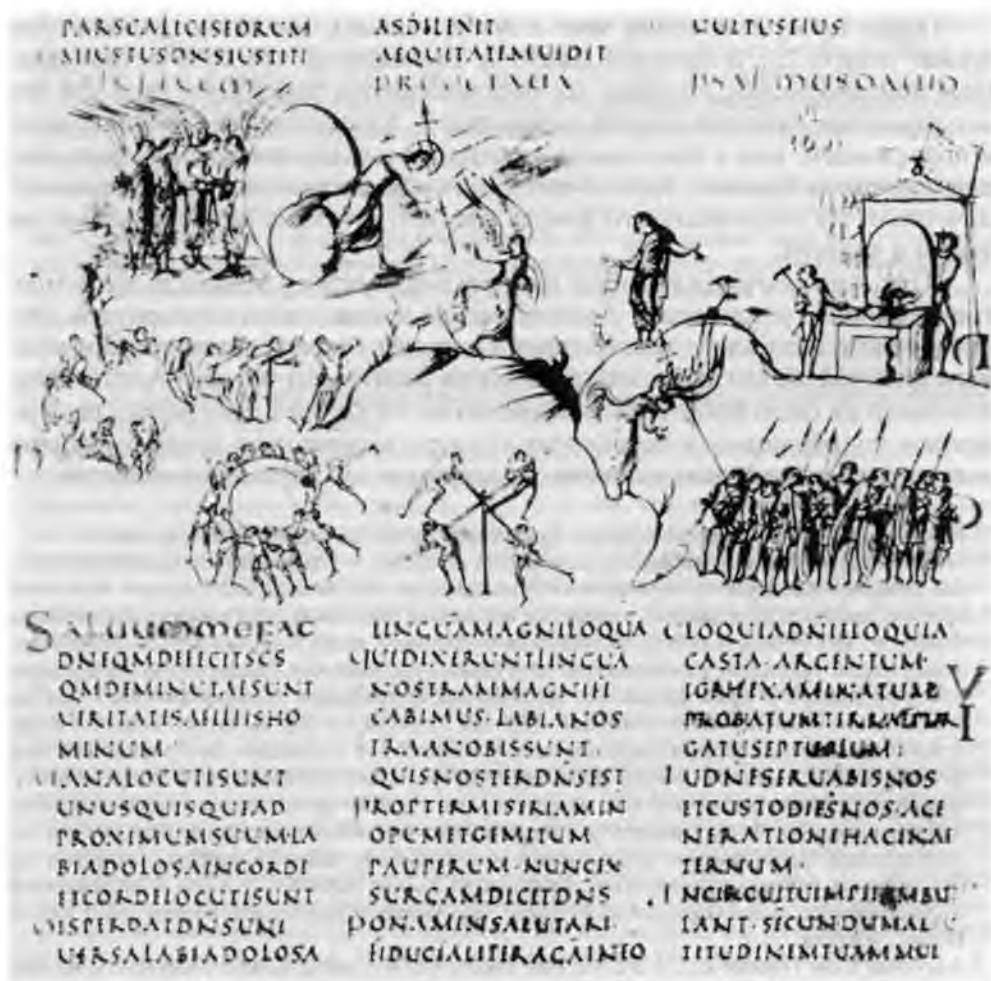 PARSCALICISEORUM
AMIUSTUSDNSIUSTITI
INFINEM
ASDILEXIT
AEQUITATEMUIDIT
PROOCTAUA
UULTUSEIUS
PSALMUSDAUID
SALUUMMEFAC
DNEQMDEFECITSCS
QMDIMINUTAESUNT
UERITATESAFILIISHO
MINUM
UANALOCUTISUNT
UNUSQUISQUEAD
PROXIMUMSUUM·LA
BIADOLOSAINCORDE
ETCORDELOCUTISUNT
DISPERDATDNSUNI
UERSALABIADOLOSA
LINGUAMAGNILOQUA
QUIDIXERUNTLINGUA
NOSTRAMMAGNIFI
CABIMUS·LABIANOS
TRAANOBISSUNT·
QUISNOSTERDNSEST
PROPTERMISERIAMIN
OPUMETGEMITUM
PAUPERUM·NUNCEX
SURGAMDICITDNS
PONAMINSALUTARI
FIDUCIALITERAGAINEO
ELOQUIADNIELOQUIA
CASTA·ARGENTUM·
IGNEEXAMINATUM
PROBATUMTERRAEPUR
GATUSEPTUPLUM:
TUDNESERUABISNOS
ETCUSTODIESNOS·AGE
NERATIONEHACINAE
TERNUM·
INCIRCUITUIMPIIAMBU
LANT·SECUNDUMAL
TITUDINEMTUAMMUL